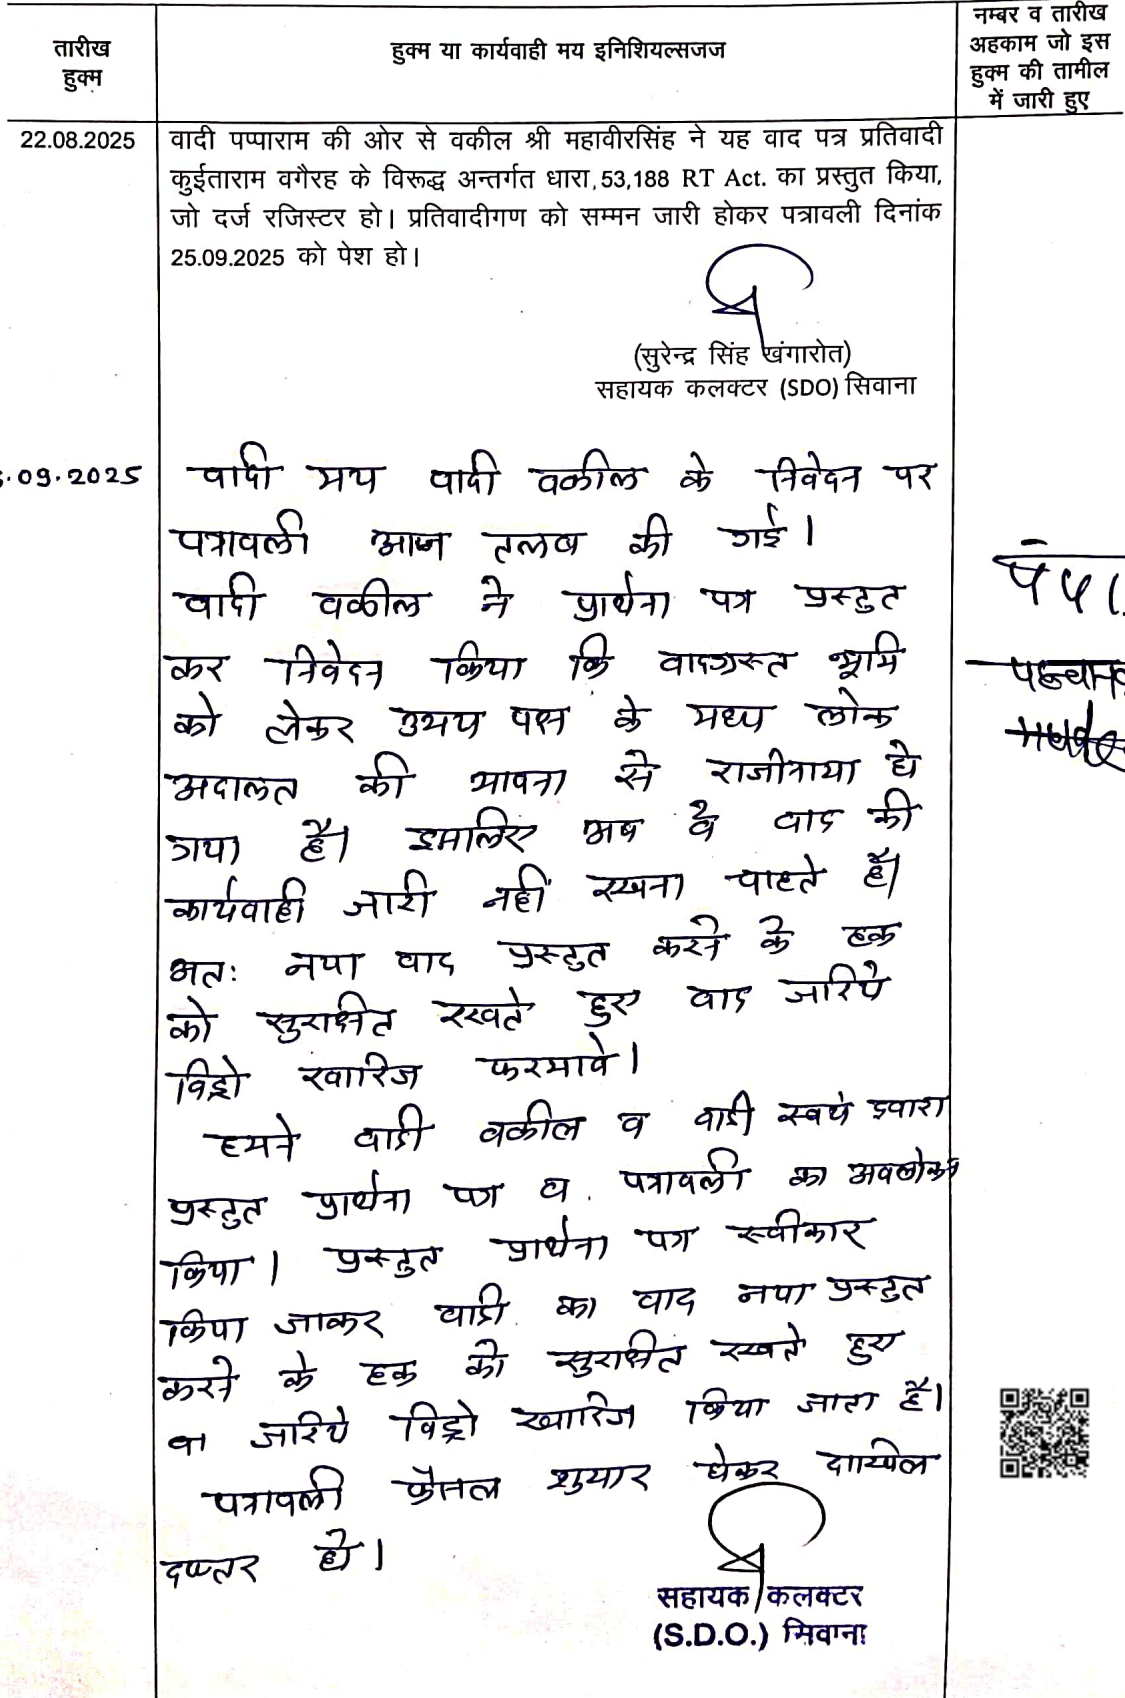 तारीख
हुक्म
हुक्म या कार्यवाही मय इनिशियल्सजज
नम्बर व तारीख
अहकाम जो इस
हुक्म की तामील
में जारी हुए
22.08.2025
वादी पप्पाराम की ओर से वकील श्री महावीरसिंह ने यह वाद पत्र प्रतिवादी
कुईताराम वगैरह के विरूद्ध अन्तर्गत धारा,53,188 RT Act. का प्रस्तुत किया,
जो दर्ज रजिस्टर हो। प्रतिवादीगण को सम्मन जारी होकर पत्रावली दिनांक
25.09.2025 को पेश हो।
(सुरेन्द्र सिंह खंगारोत)
सहायक कलक्टर (SDO) सिवाना
.09.2025
वादी मय वादी वकील के निवेदन पर
पत्रावली आज तलब की गई।
वादी वकील ने प्रार्थना पत्र प्रस्तुत
कर निवेदन किया कि वादग्रस्त भूमि
को लेकर उभय पक्ष के मध्य लोक
अदालत की भावना से राजीनामा हो
गया है। इसलिए अब वे वाद की
कार्यवाही जारी नहीं रखना चाहते है।
अतः नया वाद प्रस्तुत करने के हक
को सुरक्षित रखते हुए वाद जरिये
विड्रो खारिज फरमावे।
हमने वादी वकील व वादी स्वयं द्वारा
प्रस्तुत प्रार्थना पत्र व पत्रावली का अवलोकन
किया। प्रस्तुत प्रार्थना पत्र स्वीकार
किया जाकर वादी का वाद नया प्रस्तुत
करने के हक को सुरक्षित रखते हुए
जरिये विड्रो खारिज किया जाता है।
पत्रावली फैसल शुमार होकर दाखिल
दफ्तर हो।
सहायक कलक्टर
(S.D.O.) सिवाना